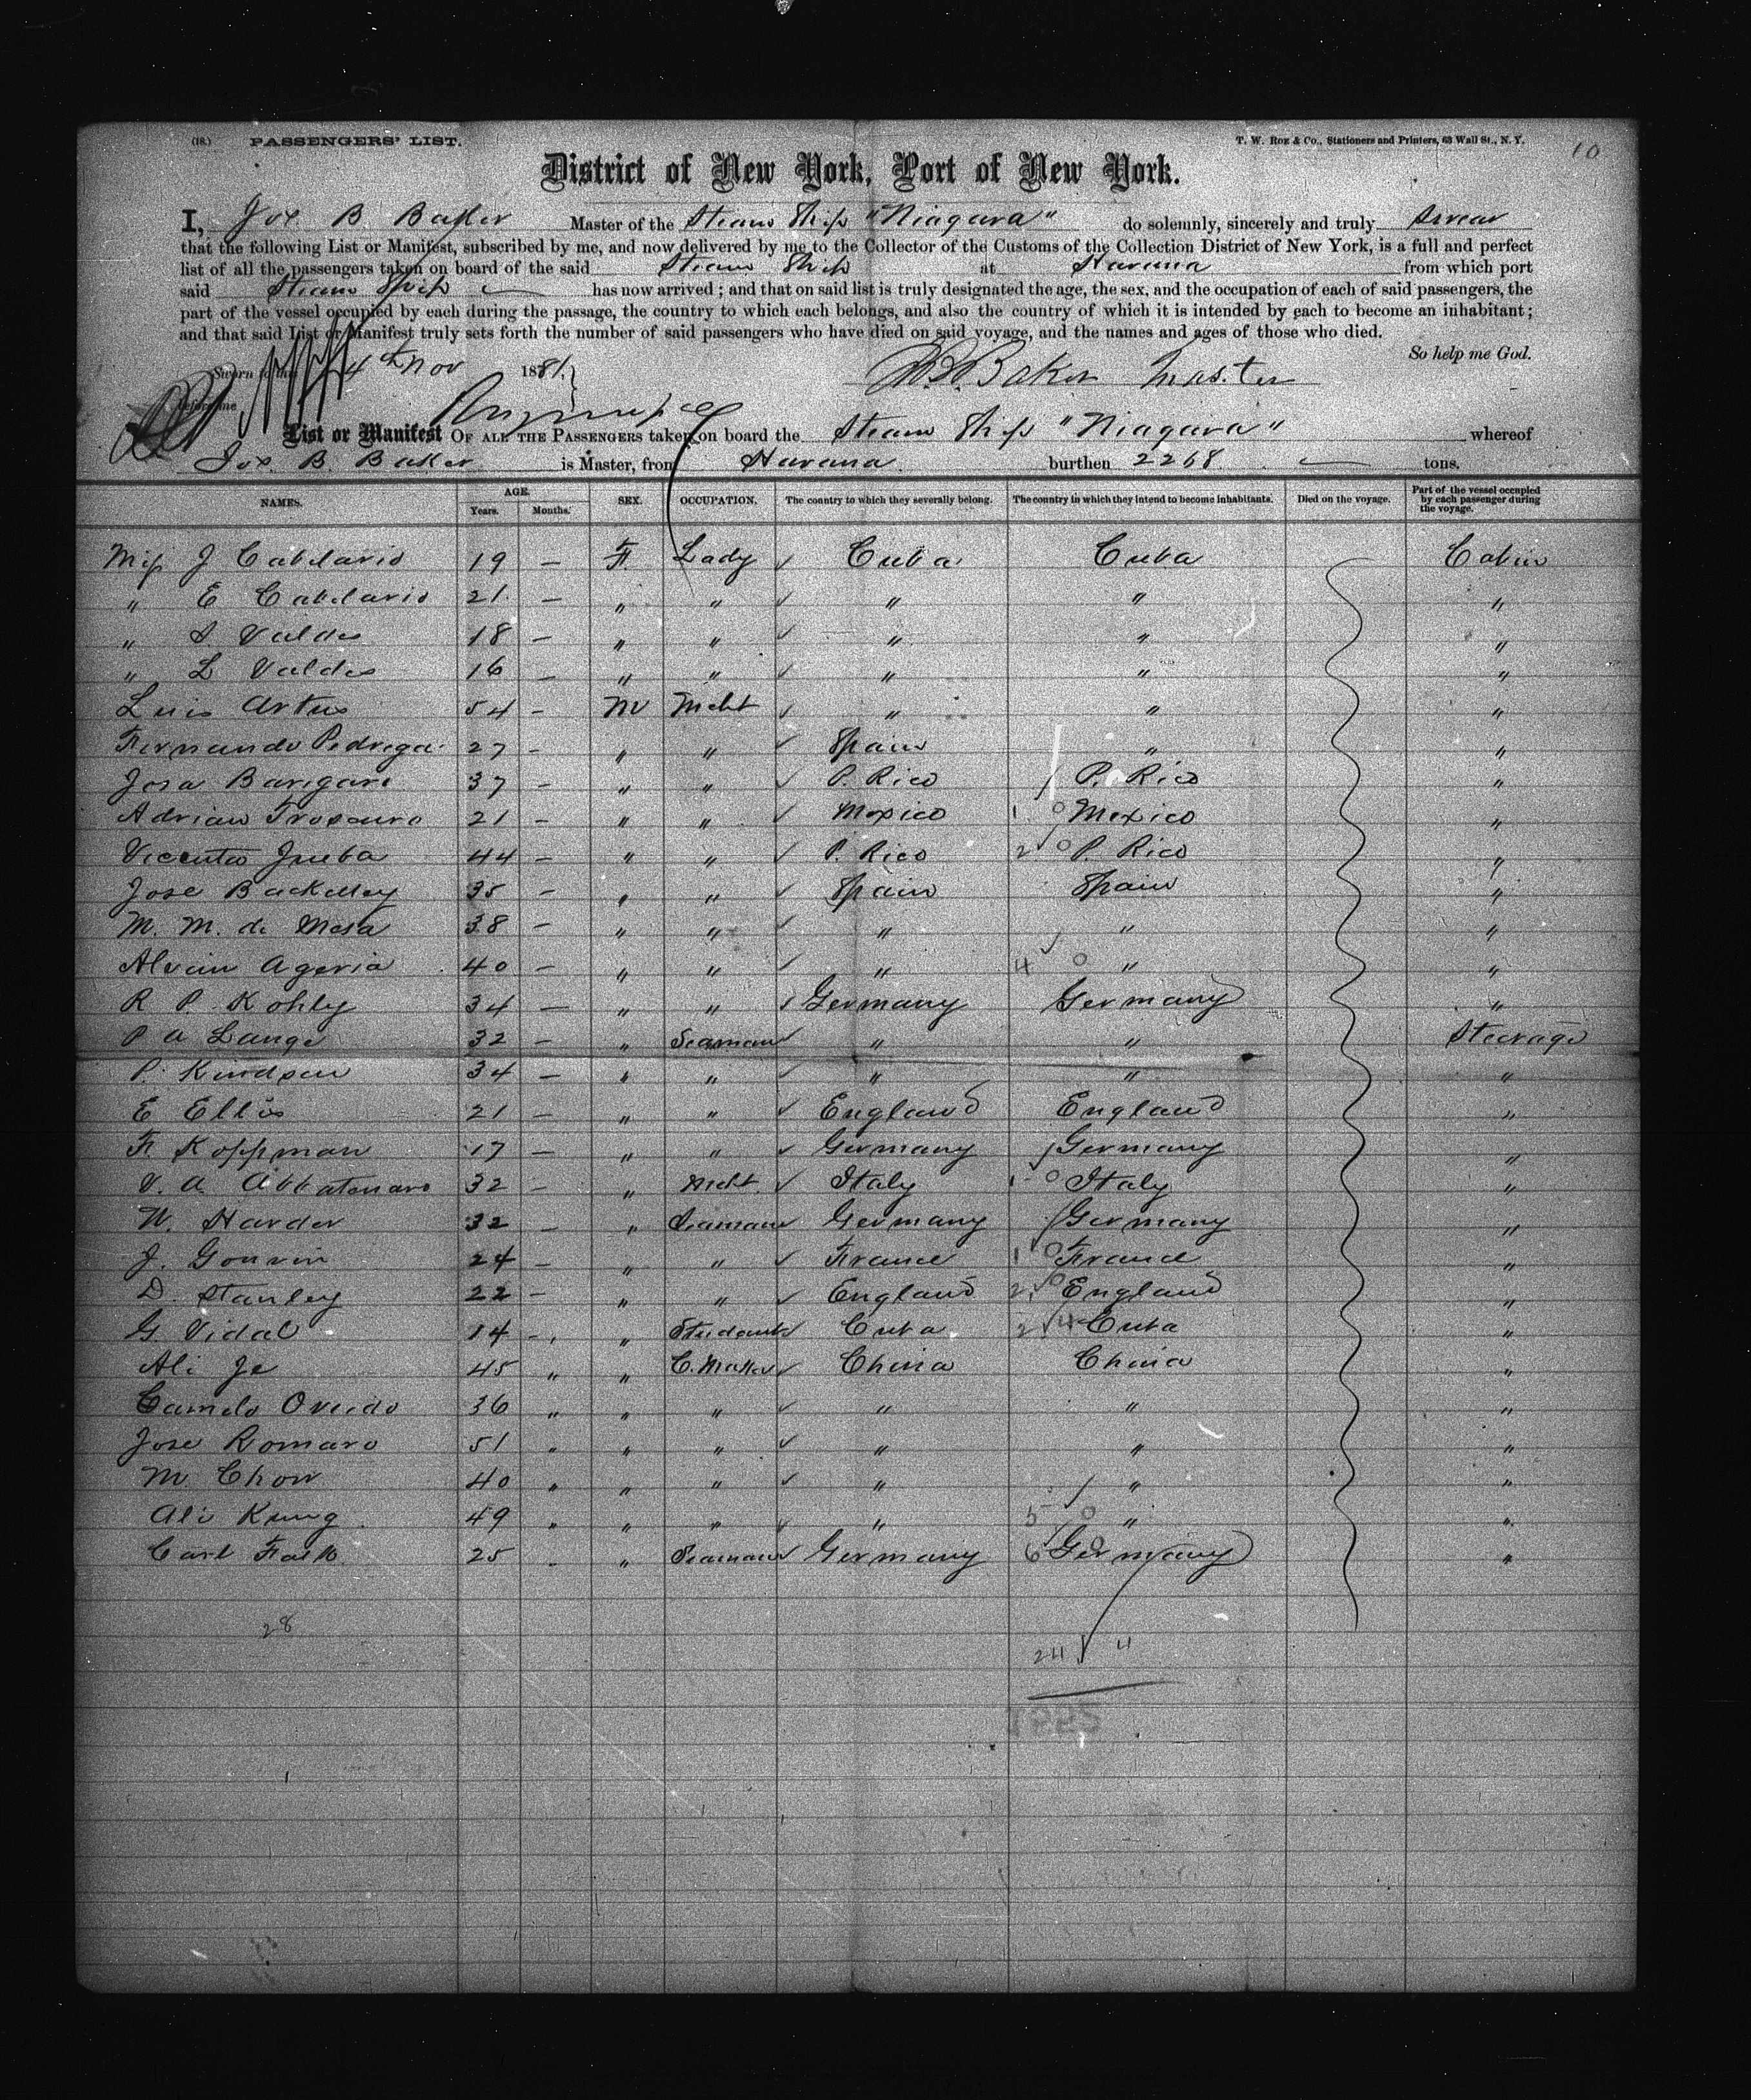 (18.) PASSENGERS' LIST. T. W. Roe & Co., Stationers and Printers, 63 Wall St., N. Y. 10
District of New York, Port of New York.
I, Jos. B. Baker Master of the Steam Ship "Niagara" do solemnly, sincerely and truly swear
that the following List or Manifest, subscribed by me, and now delivered by me to the Collector of the Customs of the Collection District of New York, is a full and perfect
list of all the passengers taken on board of the said Steam Ship at Havana from which port
said Steam Ship has now arrived; and that on said list is truly designated the age, the sex, and the occupation of each of said passengers, the
part of the vessel occupied by each during the passage, the country to which each belongs, and also the country of which it is intended by each to become an inhabitant;
and that said List or Manifest truly sets forth the number of said passengers who have died on said voyage, and the names and ages of those who died.
So help me God.
Sworn to this 4th Nov 1881, Baker Master
before me
List or Manifest OF ALL THE PASSENGERS taken on board the Steam Ship "Niagara" whereof
Jos. B. Baker is Master, from Havana burthen 2268 tons.
NAMES. AGE. Years. Months. SEX. OCCUPATION. The country to which they severally belong. The country in which they intend to become inhabitants. Died on the voyage. Part of the vessel occupied by each passenger during the voyage.
Miss J 19 — F. Lady Cuba Cuba Cabin
" E 21 — " " " " "
" S Valdes 18 — " " " " "
" L Valdes 16 — " " " " "
Luis Artus 54 — M Mcht " " "
Fernando Pedrega 27 — " " Spain " "
Josa 37 — " " P. Rico P. Rico "
Adrian 21 — " " Mexico 1 0 Mexico "
Vicenta 44 — " " P. Rico 2 0 P. Rico "
Jose 35 — " " Spain Spain "
M. M. de Mesa 38 — " " " " "
Alvain Ageria 40 — " " " 4 0 " "
R P. Kohly 34 — " " Germany Germany "
P A Lange 32 — " Seaman " " Steerage
P. 34 — " " " " "
E Ellis 21 — " " England England "
F Koppman 17 — " " Germany Germany "
V. A. 32 — " Mcht. Italy 1 0 Italy "
W. Harder 32 — " Seaman Germany Germany "
J. Gouvin 24 — " " France 1 0 France "
D. Stanley 22 — " " England 2 0 England "
G Vidal 14 — " Student Cuba 2 4 Cuba "
Ali Je 45 " " C. Maker China China "
Camelo Oviedo 36 " " " " " "
Jose Romaro 51 " " " " " "
M Chow 40 " " " " " "
Ali Kung 49 " " " " 5 0 " "
Carl Falk 25 " " Seaman Germany 6 Germany "
28
24 4